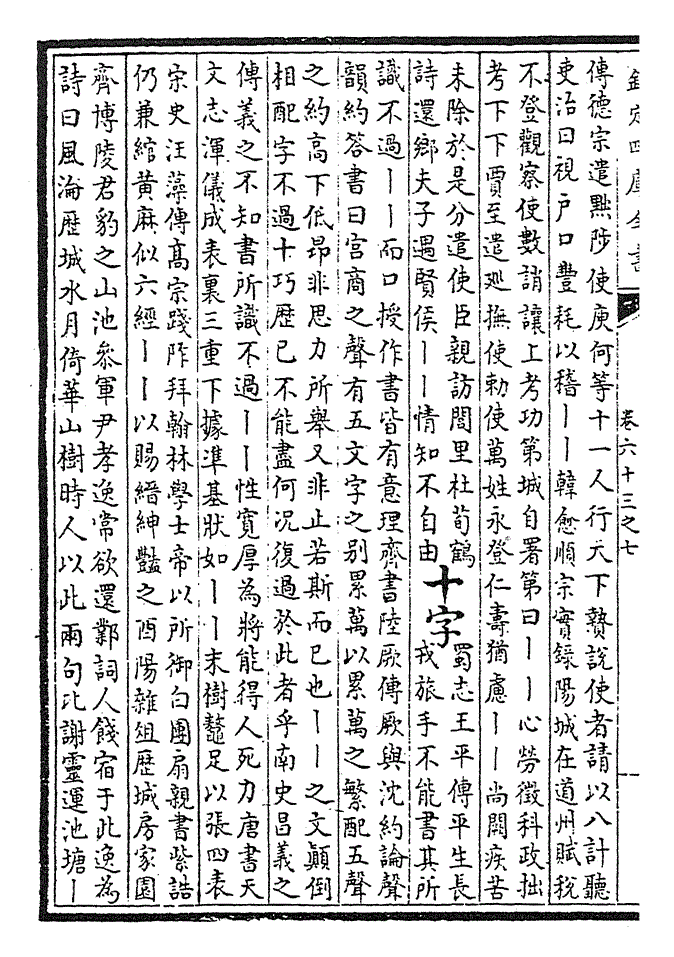 欽定四庫全書
卷六十三之七
傳德宗遣黜陟使庾何等十一人行天下贄說使者請以八計聽
吏治曰視戶口豐耗以稽丨丨韓愈順宗實錄陽城在道州賦稅
不登觀察使數誚讓上考功第城自署第曰丨丨心勞徵科政拙
考下下賈至遣廵撫使勅使萬姓永登仁壽猶慮丨丨尚闕疾苦
未除於是分遣使臣親訪閭里杜荀鶴
詩還鄉夫子遇賢侯丨丨情知不自由
十字
蜀志王平傳平生長
戎旅手不能書其所
識不過丨丨而口授作書皆有意理齊書陸厥傳厥與沈約論聲
韻約答書曰宫商之聲有五文字之别累萬以累萬之繁配五聲
之約高下低昂非思力所舉又非止若斯而已也丨丨之文顛倒
相配字不過十巧歴已不能盡何況復過於此者乎南史昌義之
傳義之不知書所識不過丨丨性寛厚為將能得人死力唐書天
文志渾儀成表裏三重下據準基狀如丨丨末樹鼇足以張四表
宗史汪藻傳高宗踐阼拜翰林學士帝以所御白團扇親書紫誥
仍兼綰黄麻似六經丨丨以賜縉紳豔之酉陽雜俎歴城房家園
齊博陵君豹之山池叅軍尹孝逸常欲還鄴詞人餞宿于此逸為
詩曰風淪歴城水月倚華山樹時人以此兩句比謝靈運池塘丨